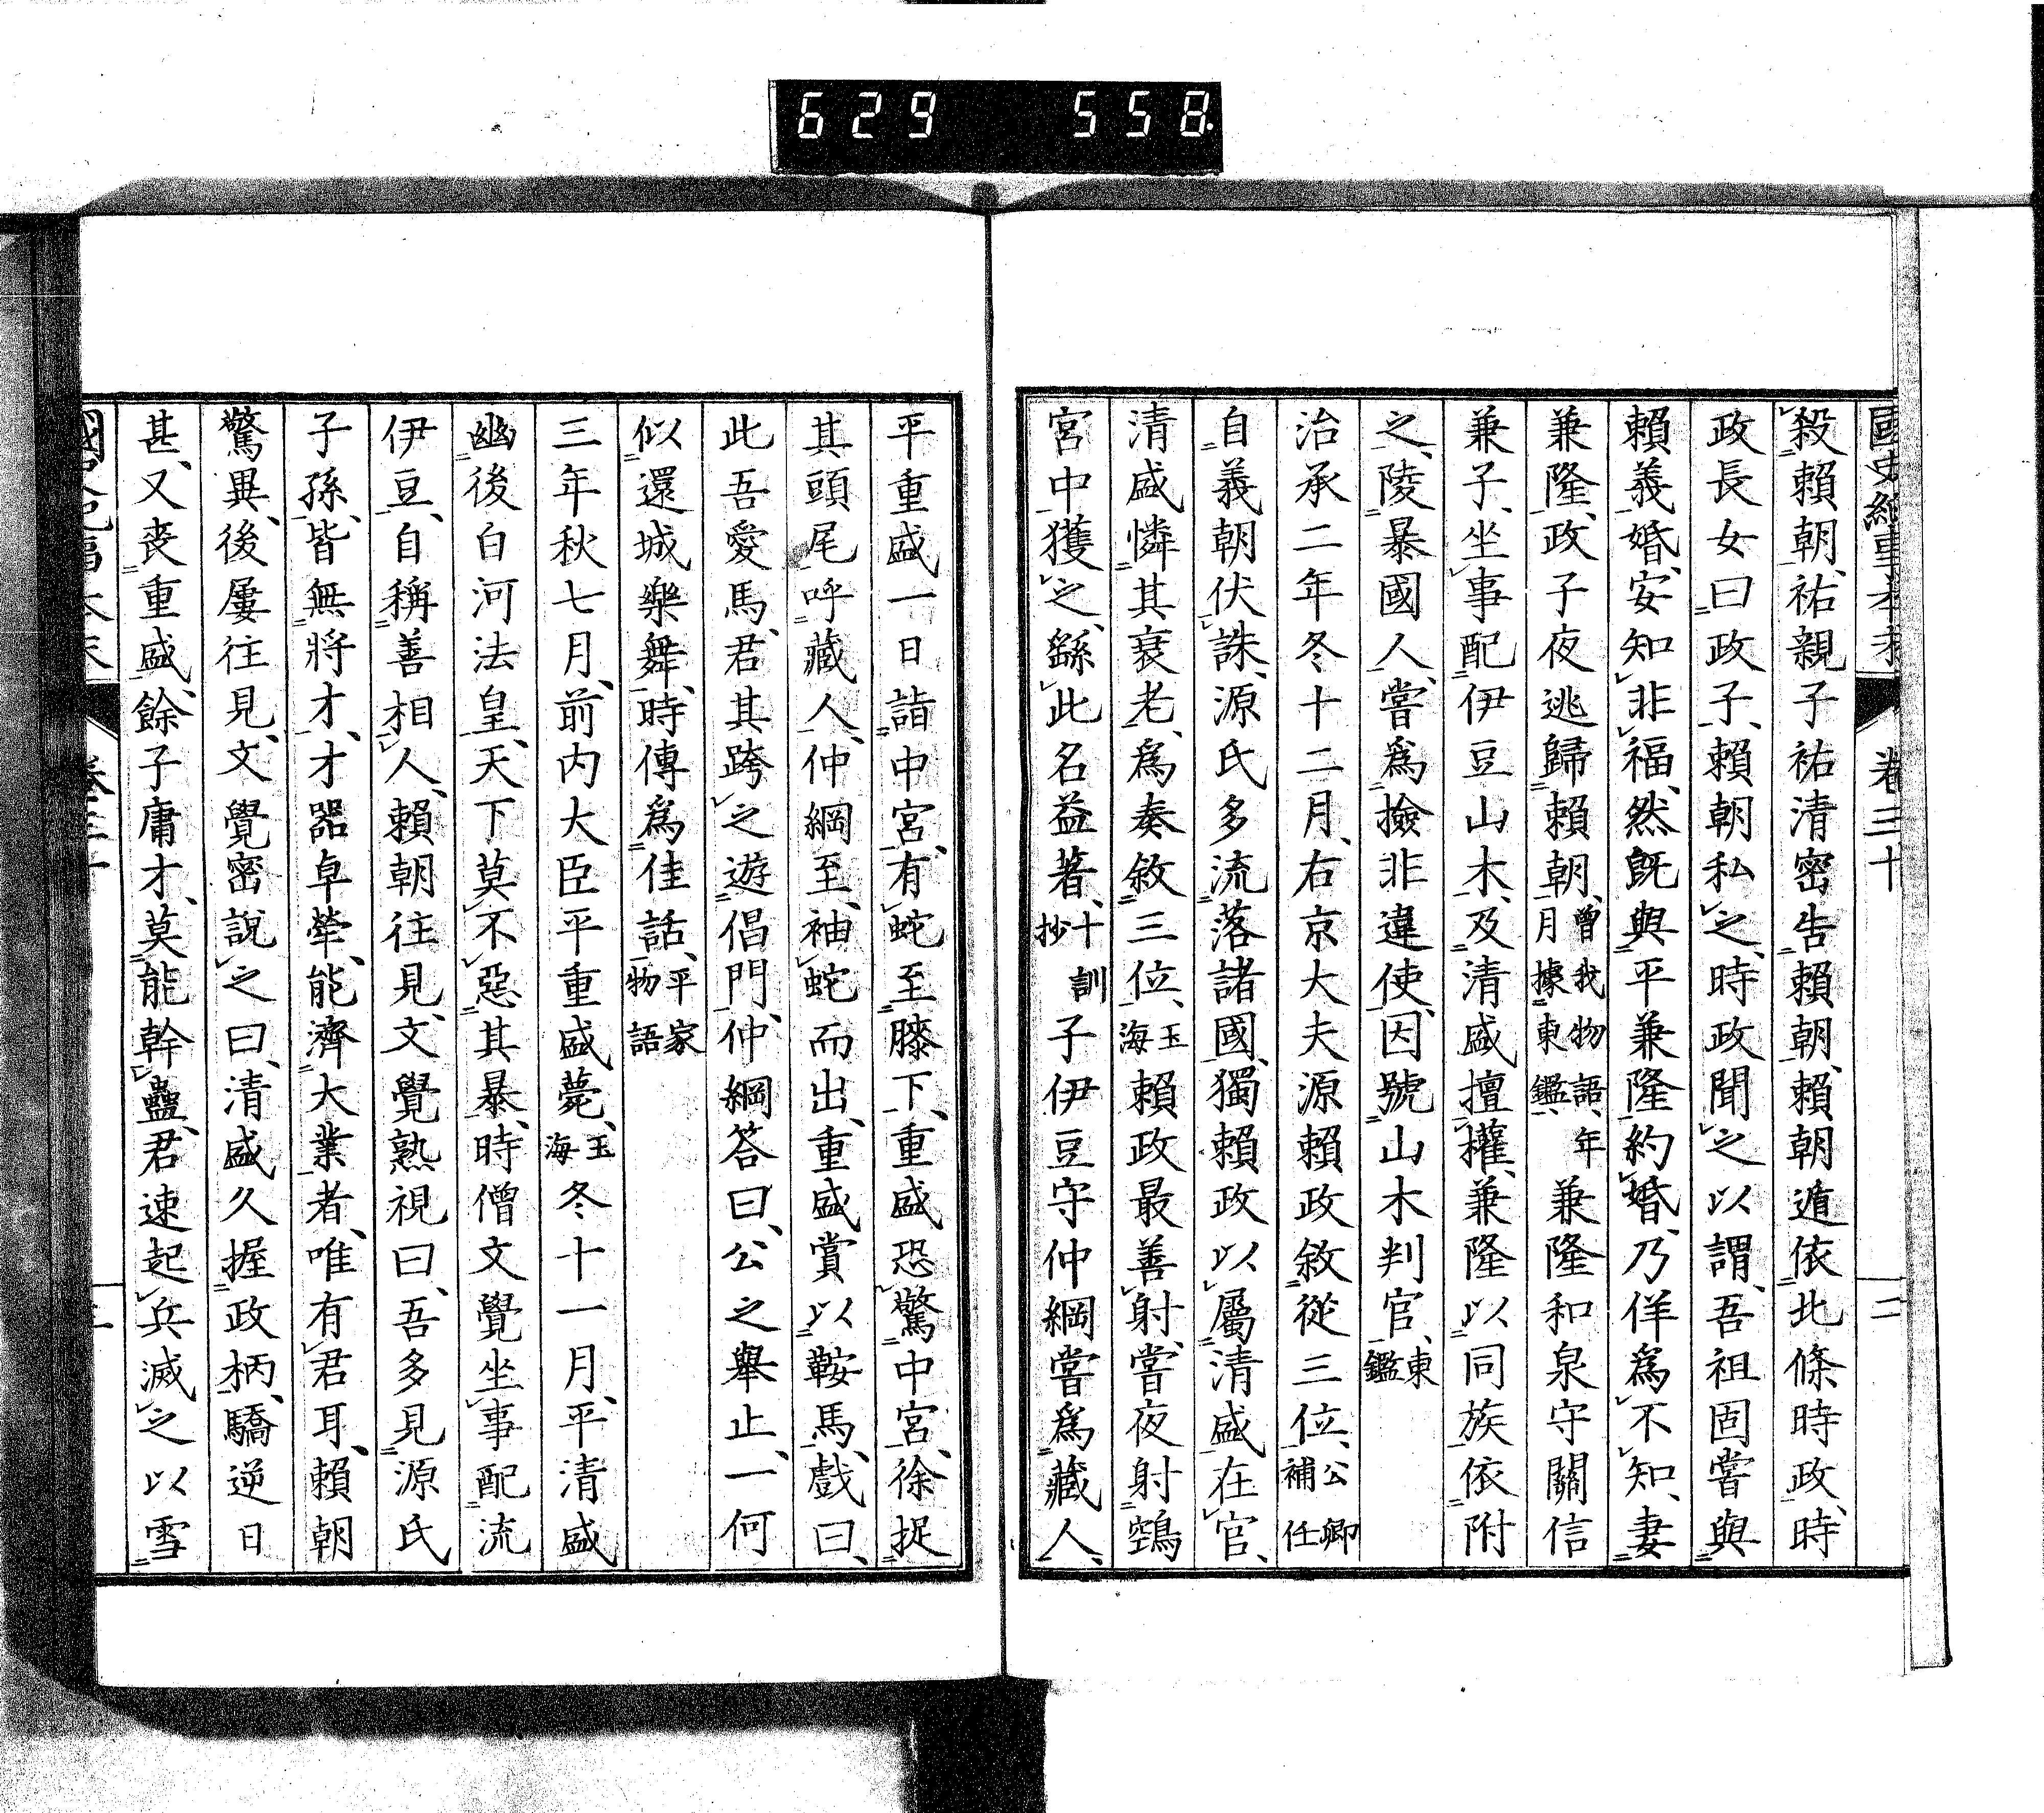 629 558
國史紀事本末 卷三十 二
殺賴朝、祐親子祐清密告賴朝、賴朝遁依北條時政、時
政長女曰政子、賴朝私之、時政聞之以謂、吾祖固嘗與
賴義婚、安知非福、然既與平兼隆約婚、乃佯爲不知、妻
兼隆、政子夜逃歸賴朝、曾我物語、年月據東鑑、兼隆和泉守關信
兼子、坐事配伊豆山木、及清盛擅權、兼隆以同族依附
之、陵暴國人、嘗爲撿非違使、因號山木判官、東鑑
治承二年冬十二月、右京大夫源賴政敘從三位、公卿補任
自義朝伏誅、源氏多流落諸國、獨賴政以屬清盛在官、
清盛憐其衰老、爲奏敘三位、玉海賴政最善射、嘗夜射鵼
宮中獲之、繇此名益著、十訓抄子伊豆守仲綱嘗爲藏人、
平重盛一日詣中宮、有蛇至膝下、重盛恐驚中宮、徐捉
其頭尾呼藏人、仲綱至、袖蛇而出、重盛賞以鞍馬、戲曰、
此吾愛馬、君其跨之遊倡門、仲綱答曰、公之舉止、一何
似還城樂舞、時傳爲佳話、平家物語
三年秋七月、前內大臣平重盛薨、玉海冬十一月、平清盛
幽後白河法皇、天下莫不惡其暴、時僧文覺坐事配流
伊豆、自稱善相人、賴朝往見、文覺熟視曰、吾多見源氏
子孫、皆無將才、才器卓犖、能濟大業者、唯有君耳、賴朝
驚異、後屢往見、文覺密說之曰、清盛久握政柄、驕逆日
甚、又喪重盛、餘子庸才、莫能幹蠱、君速起兵滅之以雪